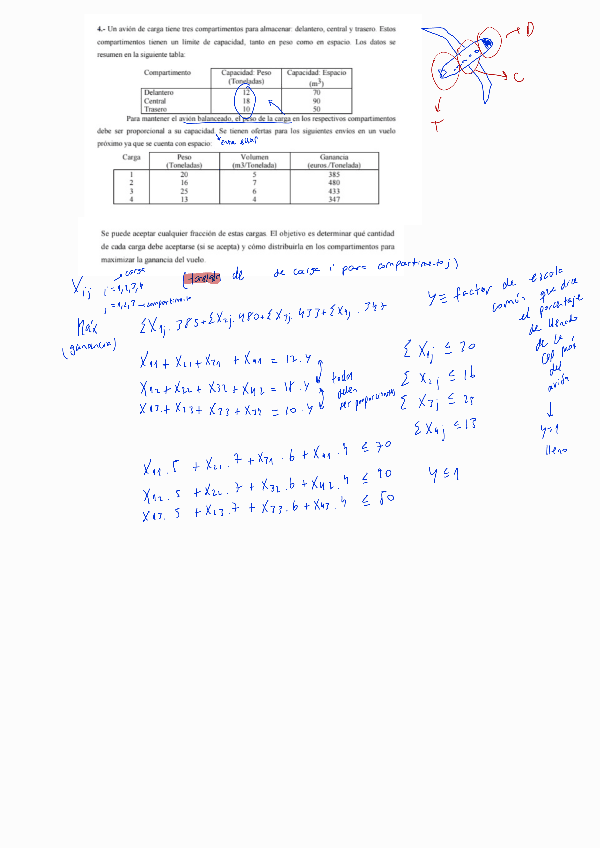 4.- Un avión de carga tiene tres compartimentos para almacenar: delantero, central y trasero. Estos
compartimentos tienen un límite de capacidad, tanto en peso como en espacio. Los datos se
resumen en la siguiente tabla:
Compartimento Capacidad: Peso (Toneladas) Capacidad: Espacio (m³)
Delantero 12 70
Central 18 90
Trasero 10 50
Para mantener el avión balanceado, el peso de la carga en los respectivos compartimentos
debe ser proporcional a su capacidad. Se tienen ofertas para los siguientes envíos en un vuelo
próximo ya que se cuenta con espacio:
Carga Peso (Toneladas) Volumen (m3/Tonelada) Ganancia (euros/Tonelada)
1 20 5 385
2 16 7 480
3 25 6 433
4 13 4 347
Se puede aceptar cualquier fracción de estas cargas. El objetivo es determinar qué cantidad
de cada carga debe aceptarse (si se acepta) y cómo distribuirla en los compartimentos para
maximizar la ganancia del vuelo.
D
C
T
Xij
carga
i=1,2,3,4
j=1,2,3 → compartimento
(toneladas de de carga i para compartimento j)
Máx (ganancia)
Σ X1j . 385 + Σ X2j . 480 + Σ X3j . 433 + Σ X4j . 347
y ≡ factor de escala
común que dice
el porcentaje
de llenado
de la
cap max
del
avión
↓
y=1
lleno
X11 + X21 + X31 + X41 = 12.y
X12 + X22 + X32 + X42 = 18.y
X13 + X23 + X33 + X43 = 10.y
todos
deben
ser proporcionales
Σ X1j ≤ 20
Σ X2j ≤ 16
Σ X3j ≤ 25
Σ X4j ≤ 13
X11 . 5 + X21 . 7 + X31 . 6 + X41 . 4 ≤ 70
X12 . 5 + X22 . 7 + X32 . 6 + X42 . 4 ≤ 90
X13 . 5 + X23 . 7 + X33 . 6 + X43 . 4 ≤ 50
y ≤ 1